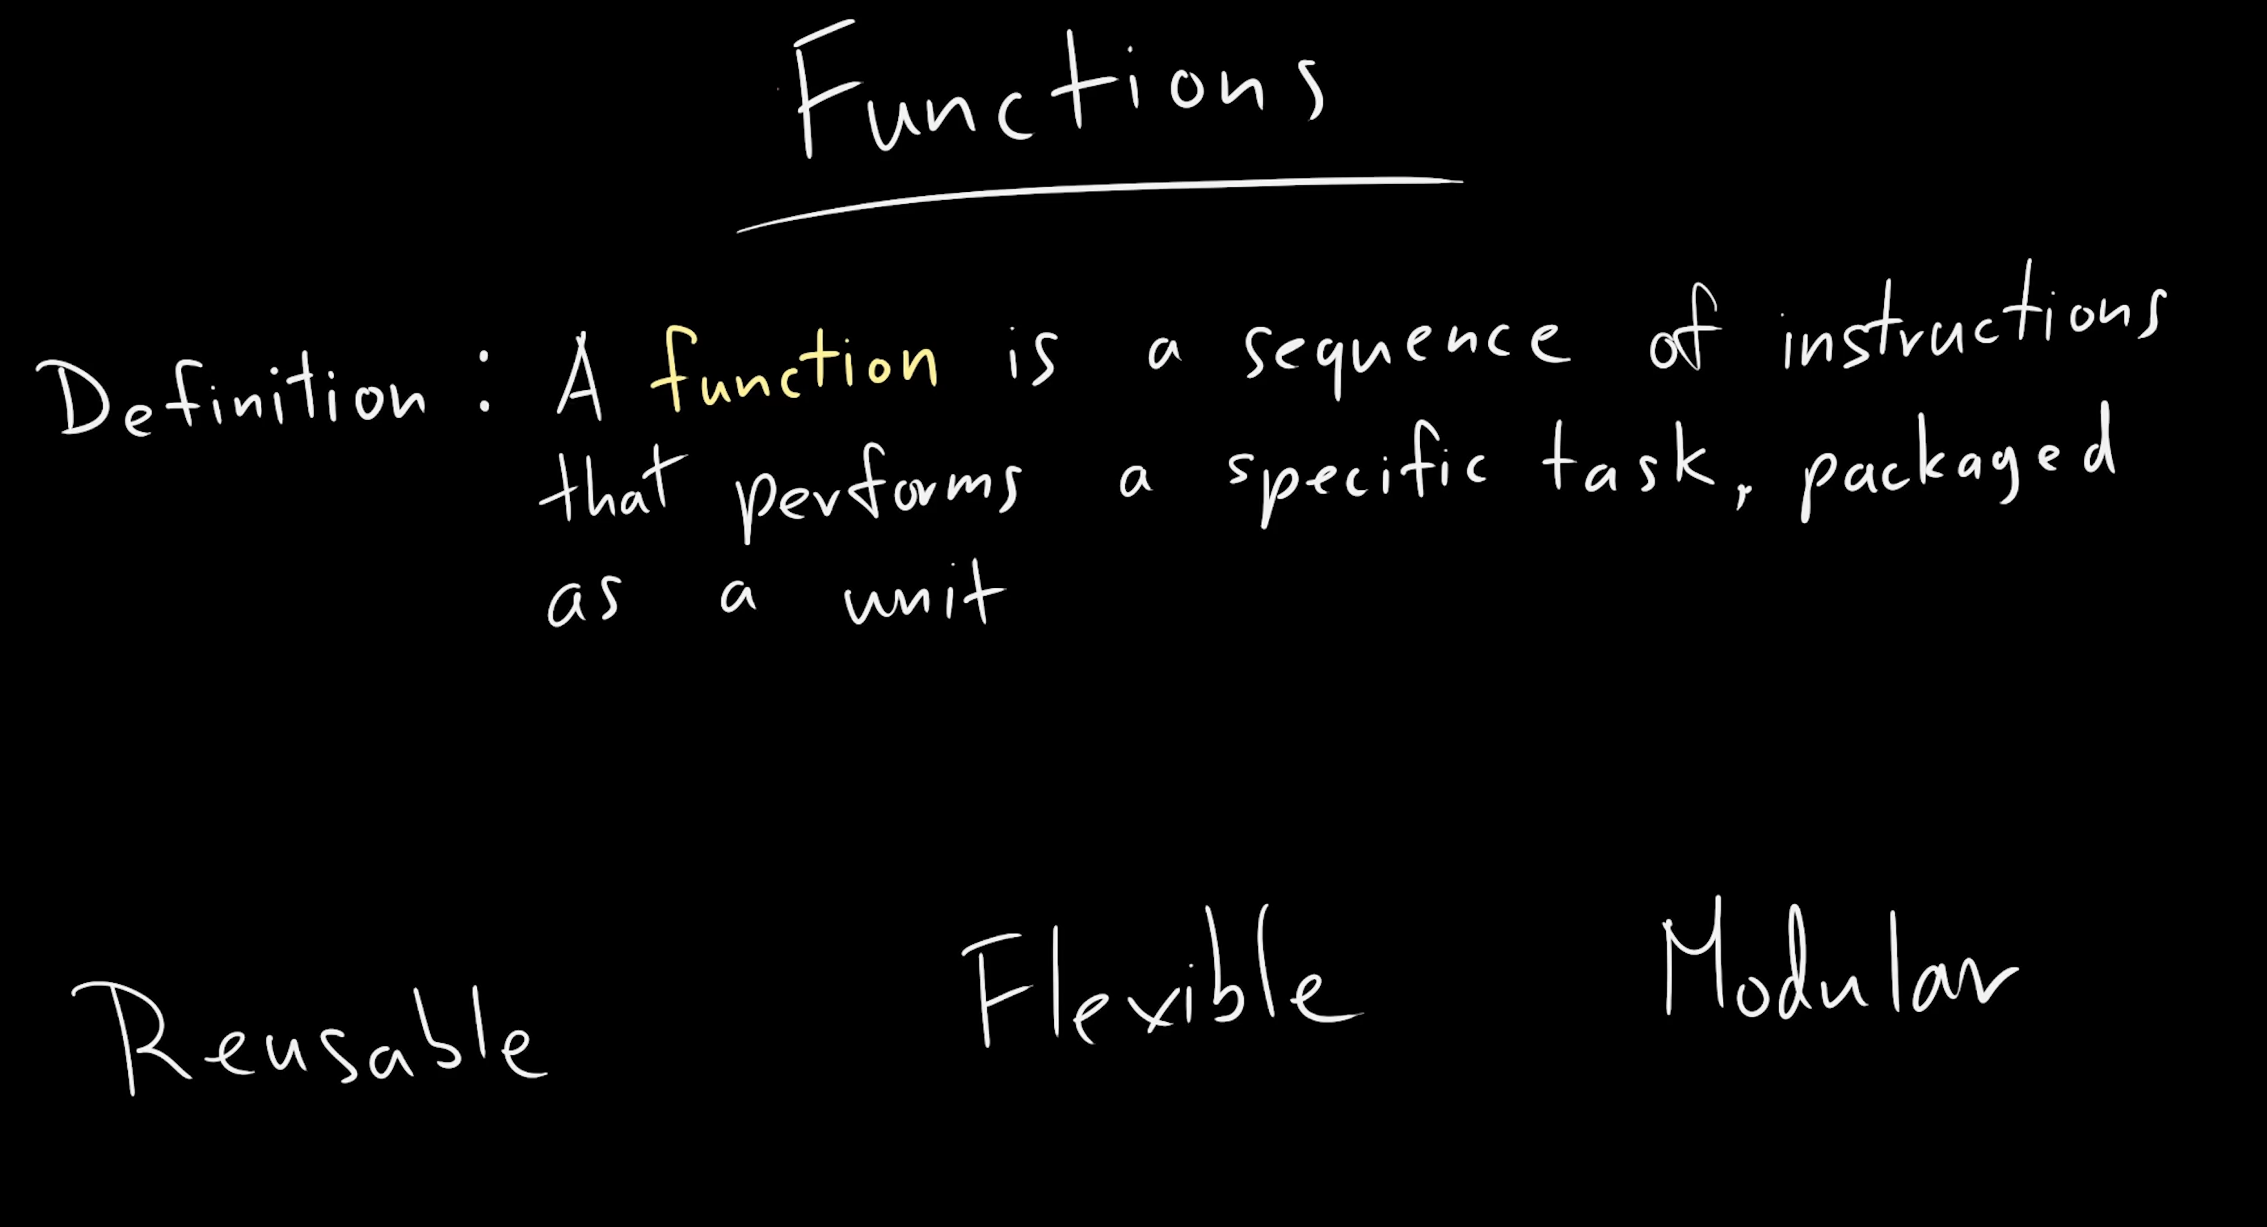 Functions
Definition : A function is a sequence of instructions
that performs a specific task, packaged
as a unit
Reusable Flexible Modular